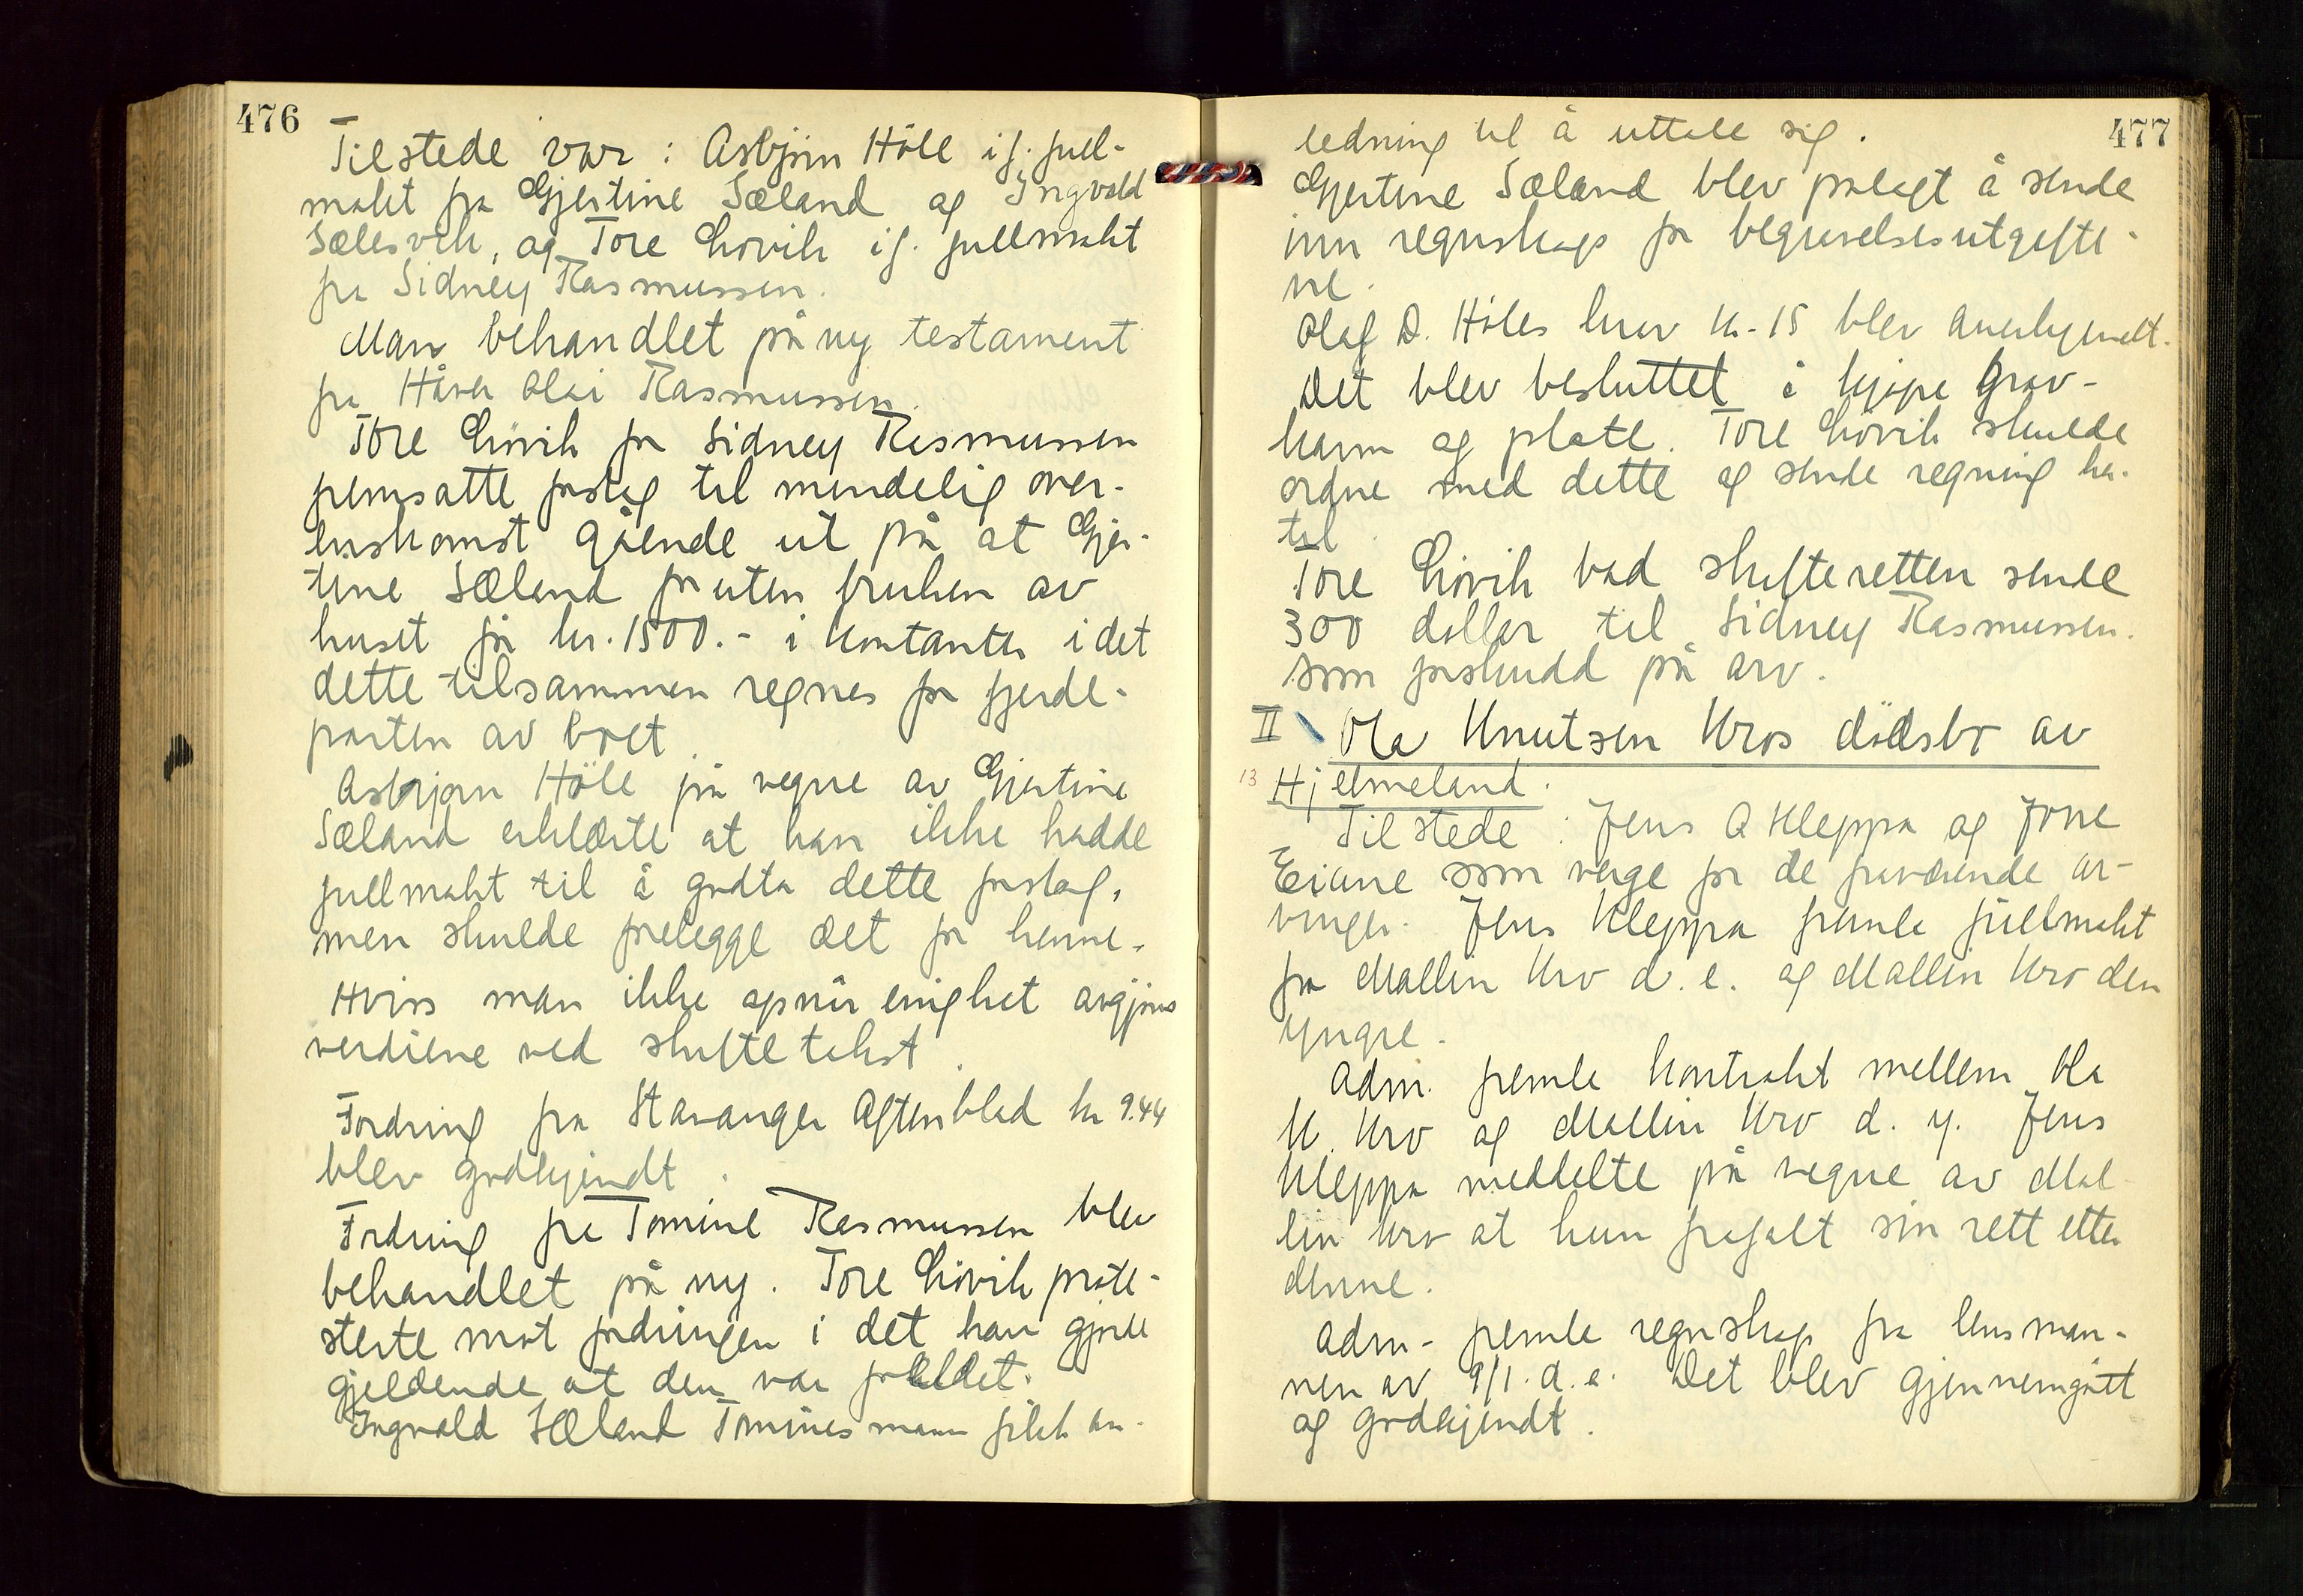 476
Tilstede var: Asbjørn Höle if. full-
makt fra Gjertine Sæland og Ingvald
Sælesvik, og Tore Lövik if. fullmakt
fra Sidney Rasmussen.
Man behandlet på ny testament
fra Håver Olai Rasmussen.
Tore Lövik for Sidney Rasmussen
fremsatte forslag til minnelig over-
enskomst gående ut på at Gjer-
tine Sæland foruten bruken av
huset får kr. 1500.- i kontanter idet
dette tilsammen regnes for fjerde-
parten av boet.
Asbjørn Höle på vegne av Gjertine
Sæland erklærte at han ikke hadde
fullmakt til å godta dette forslag,
men skulde forelegge det for henne.
Hvis man ikke opnår enighet avgjøres
verdiene ved skiftetakst.
Fordring fra Stavanger Aftenblad kr 9.44
blev godkjendt.
Fordring fra Tomine Rasmussen blev
behandlet på ny. Tore Lövik prote-
sterte mot fordringen i det han gjorde
gjeldende at den var foreldet.
Ingvald Sæland Tomines mann fikk an-
477
ledning til å uttale sig.
Gjertine Sæland blev pålagt å sende
inn regnskap for begravelsesutgifte-
ne.
Olaf D. Höles krav kr. 15 blev anerkjendt.
Det blev besluttet å kjøpe grav-
karm og plate. Tore Lövik skulde
ordne med dette og sende regning her-
til.
Tore Lövik bad skifteretten sende
300 dollar til Sidney Rasmussen.
som forskudd på arv.
II Ola Knutsen Kros dödsbo av
13 Hjelmeland.
Tilstede: Jens O Kleppa og Jone
Eiane som verge for de fraværende ar-
vinger. Jens Kleppa fremla fullmakt
fra Mallin Kro d. e. og Mallin Kro den
yngre.
Adm. fremla kontrakt mellem Ola
K. Kro og Mallin Kro d. y. Jens
Kleppa meddelte på vegne av Mal-
lin Kro at hun frafalt sin rett etter
denne.
Adm. fremla regnskap fra lensman-
nen av 9/1. d. a. Det blev gjennemgått
og godkjendt.